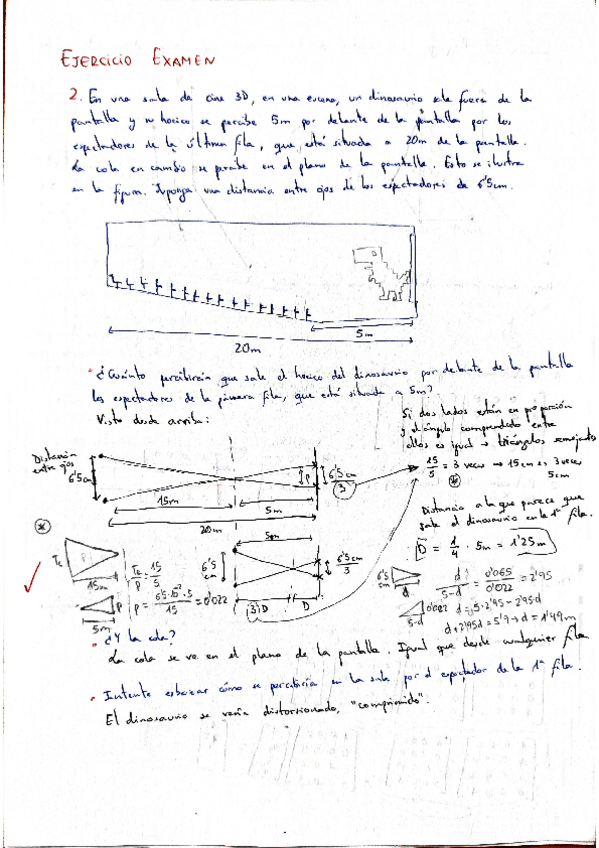 EJERCICIO EXAMEN
2. En una sala de cine 3D, en una escena, un dinosaurio sale fuera de la
pantalla y su hocico se percibe 5m por delante de la pantalla por los
espectadores de la última fila, que está situada a 20m de la pantalla.
La cola en cambio se percibe en el plano de la pantalla. Esto se ilustra
en la figura. Suponga una distancia entre ojos de los espectadores de 6'5cm.
5m
20m
¿Cuánto percibirán que sale el hocico del dinosaurio por delante de la pantalla
los espectadores de la primera fila, que está situada a 5m?
Visto desde arriba:
Si dos lados están en proporción
y el ángulo comprendido entre
ellos es igual → triángulos semejantes
15/5 = 3 veces → 15cm es 3 veces
5cm
Distancia
entre ojos
6'5cm
15m
5m
20m
P
6'5cm/3
Distancia a la que parece que
sale el dinosaurio en la 1ª fila.
D = 1/4 · 5m = 1'25m
5m
6'5 cm
6'5cm/3
(3)D
D
15m
P
5m
P = 6'5·10⁻²·5/15 = 0'022
6'5 cm
d
d/5-d = 0'065/0'022 = 2'95
0'022
5-d
d = 5·2'95 - 2'95d
d + 2'95d = 5'9 → d = 1'49m
¿Y la cola?
La cola se ve en el plano de la pantalla. Igual que desde cualquier fila
Intente esbozar cómo se percibiría en la sala por el espectador de la 1ª fila.
El dinosaurio se vería distorsionado, "comprimido".